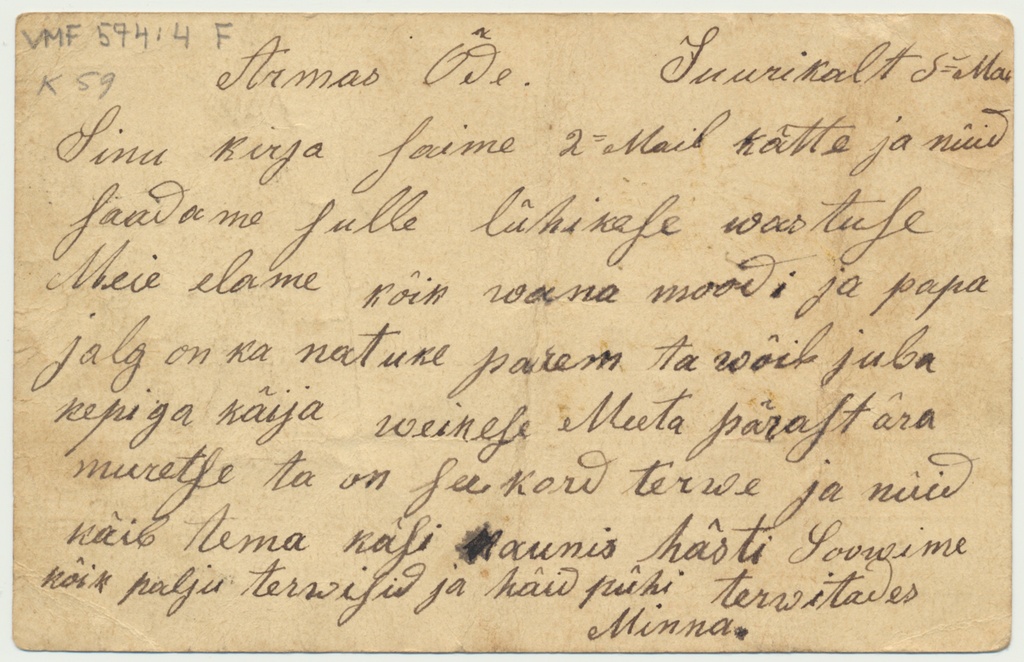 VMF 594:4 F
K 59
Armas Õde. Suurikalt 5= Mai
Sinu kirja saime 2= Mail kätte ja nüüd
saadame sulle lühikese wastuse
Meie elame kõik wana moodi ja papa
jalg on ka natuke parem ta wõib juba
kepiga käija weikese Meeta pärast ära
muretse ta on see kord terwe ja nüüd
käib tema käsi kaunis hästi Soowime
kõik palju terwisid ja häid pühi terwitades
Minna.